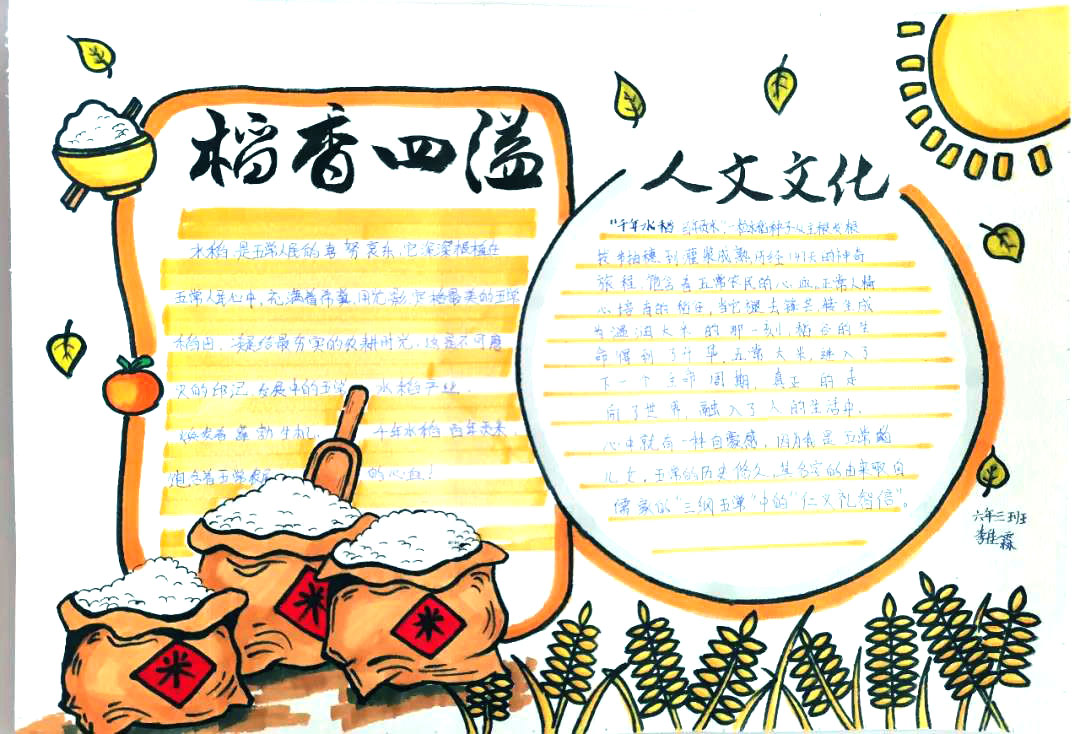 稻香四溢
水稻是五常人民的喜怒哀乐,它深深根植在
五常人民心中,充满着希冀,用光彩定格最美的五常
稻田,凝聚给最夯实的农耕时光,这是不可磨
灭的印记,发展中的五常 水稻产业,
焕发着蓬勃生机, 千年水稻 百年天禾,
饱含着五常 的心血!
人文文化
"千年水稻 一粒水稻种子从生根发根
拔节抽穗,到灌浆成熟历经147天的神奇
旅程,饱含着五常农民的心血,五常人精
心培育的稻谷,当它褪去稻壳转生成
为温润大米的那一刻,稻谷的生
命得到了升华,五常大米,进入了
下一个生命周期,真正的走
向了世界,融入了人的生活中,
心中就有一种自豪感,因为我是五常的
儿女,五常的历史悠久,其名字的由来取自
儒家的"三纲五常"中的"仁义礼智信"。
六年三班
李佳霖
米
米
米